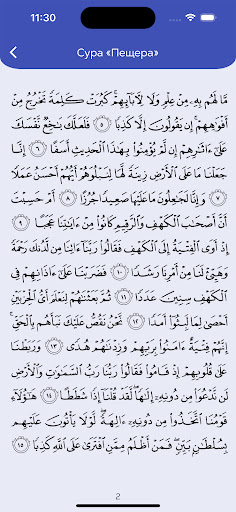 11:30
Сура «Пещера»
مَّا لَهُم بِهِۦ مِنْ عِلْمٍ وَلَا لِـَٔابَآئِهِمْ ۚ كَبُرَتْ كَلِمَةً تَخْرُجُ مِنْ
أَفْوَٰهِهِمْ ۚ إِن يَقُولُونَ إِلَّا كَذِبًا ۝٥ فَلَعَلَّكَ بَـٰخِعٌ نَّفْسَكَ
عَلَىٰٓ ءَاثَـٰرِهِمْ إِن لَّمْ يُؤْمِنُوا۟ بِهَـٰذَا ٱلْحَدِيثِ أَسَفًا ۝٦ إِنَّا
جَعَلْنَا مَا عَلَى ٱلْأَرْضِ زِينَةً لَّهَا لِنَبْلُوَهُمْ أَيُّهُمْ أَحْسَنُ عَمَلًا
۝٧ وَإِنَّا لَجَـٰعِلُونَ مَا عَلَيْهَا صَعِيدًا جُرُزًا ۝٨ أَمْ حَسِبْتَ
أَنَّ أَصْحَـٰبَ ٱلْكَهْفِ وَٱلرَّقِيمِ كَانُوا۟ مِنْ ءَايَـٰتِنَا عَجَبًا ۝٩
إِذْ أَوَى ٱلْفِتْيَةُ إِلَى ٱلْكَهْفِ فَقَالُوا۟ رَبَّنَآ ءَاتِنَا مِن لَّدُنكَ رَحْمَةً
وَهَيِّئْ لَنَا مِنْ أَمْرِنَا رَشَدًا ۝١٠ فَضَرَبْنَا عَلَىٰٓ ءَاذَانِهِمْ فِى
ٱلْكَهْفِ سِنِينَ عَدَدًا ۝١١ ثُمَّ بَعَثْنَـٰهُمْ لِنَعْلَمَ أَىُّ ٱلْحِزْبَيْنِ
أَحْصَىٰ لِمَا لَبِثُوٓا۟ أَمَدًا ۝١٢ نَّحْنُ نَقُصُّ عَلَيْكَ نَبَأَهُم بِٱلْحَقِّ ۚ
إِنَّهُمْ فِتْيَةٌ ءَامَنُوا۟ بِرَبِّهِمْ وَزِدْنَـٰهُمْ هُدًى ۝١٣ وَرَبَطْنَا
عَلَىٰ قُلُوبِهِمْ إِذْ قَامُوا۟ فَقَالُوا۟ رَبُّنَا رَبُّ ٱلسَّمَـٰوَٰتِ وَٱلْأَرْضِ
لَن نَّدْعُوَا۟ مِن دُونِهِۦٓ إِلَـٰهًا ۖ لَّقَدْ قُلْنَآ إِذًا شَطَطًا ۝١٤ هَـٰٓؤُلَآءِ
قَوْمُنَا ٱتَّخَذُوا۟ مِن دُونِهِۦٓ ءَالِهَةً ۖ لَّوْلَا يَأْتُونَ عَلَيْهِم
بِسُلْطَـٰنٍۭ بَيِّنٍ ۖ فَمَنْ أَظْلَمُ مِمَّنِ ٱفْتَرَىٰ عَلَى ٱللَّهِ كَذِبًا ۝١٥
2